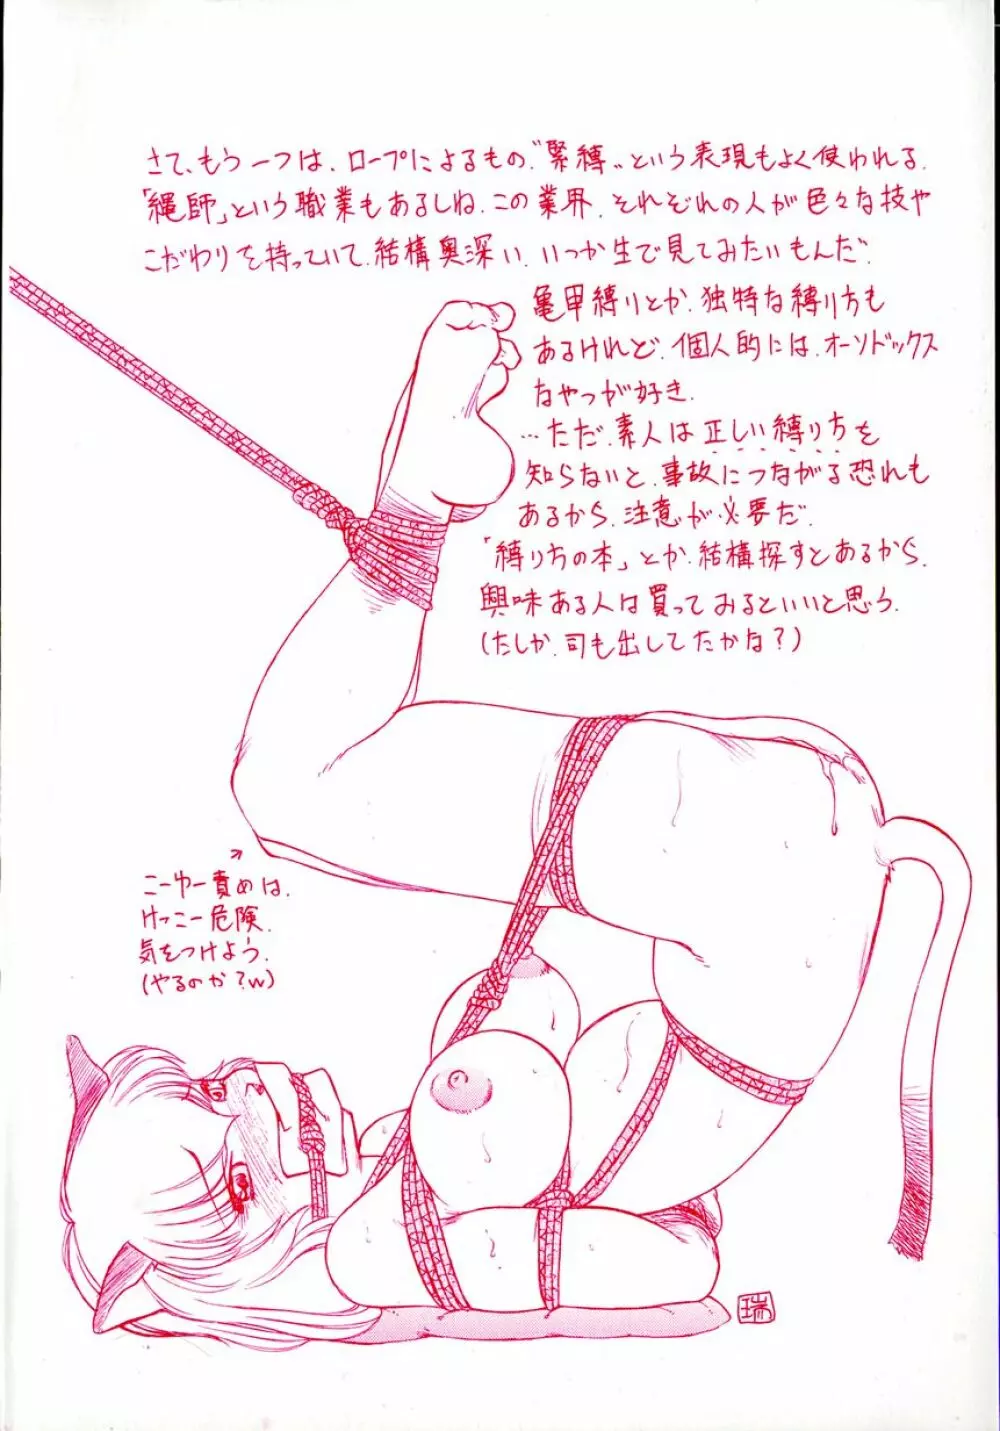 さて、もう一つは、ロープによるもの、"緊縛"という表現もよく使われる。
「縄師」という職業もあるしね、この業界、それぞれの人が色々な技や
こだわりを持っていて、結構奥深い、いつか生で見てみたいもんだ。
亀甲縛りとか、独特な縛り方も
あるけれど、個人的には、オーソドックス
なやつが好き。
…ただ、素人は正しい縛り方を
知らないと、事故につながる恐れも
あるから、注意が必要だ。
「縛り方の本」とか、結構探すとあるから、
興味ある人は買ってみるといいと思う。
(たしか、司も出してたかな?)
こーゆー責めは、
けっこー危険、
気をつけよう。
(やるのか?w)
瑞